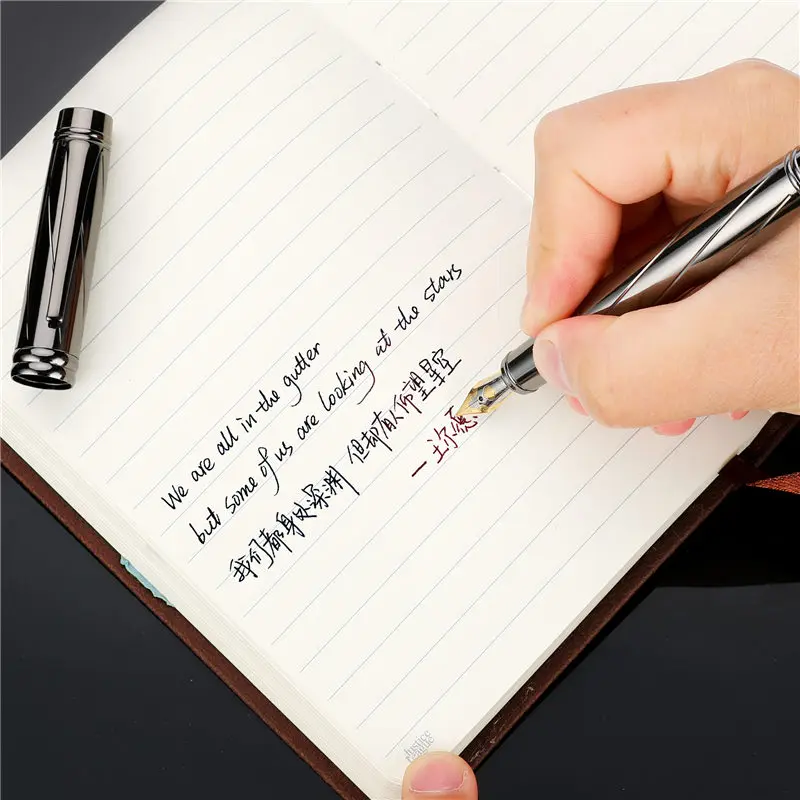 We are all in the gutter
but some of us are looking at the stars
我们都身处深渊 但却有人仰望星空
Justice
League